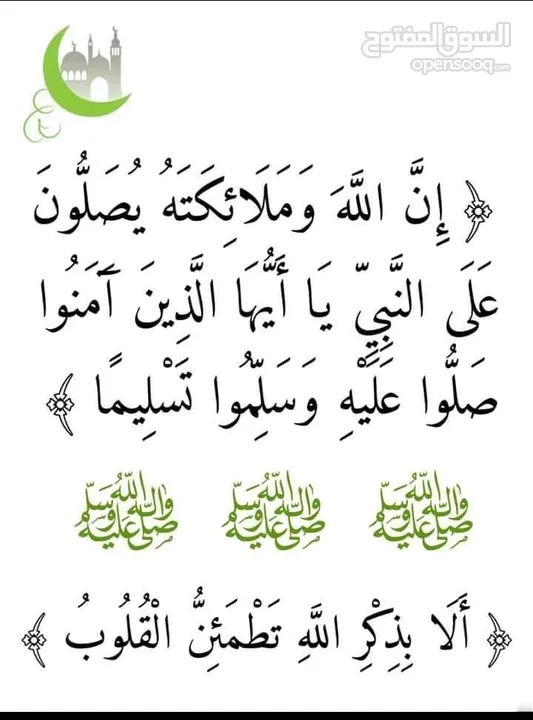 السوق المفتوح
opensooq.com
﴿ إِنَّ اللَّهَ وَمَلَائِكَتَهُ يُصَلُّونَ
عَلَى النَّبِيِّ يَا أَيُّهَا الَّذِينَ آمَنُوا
صَلُّوا عَلَيْهِ وَسَلِّمُوا تَسْلِيمًا ﴾
صلى الله عليه وآله وسلم صلى الله عليه وآله وسلم صلى الله عليه وآله وسلم
﴿ أَلَا بِذِكْرِ اللَّهِ تَطْمَئِنُّ الْقُلُوبُ ﴾